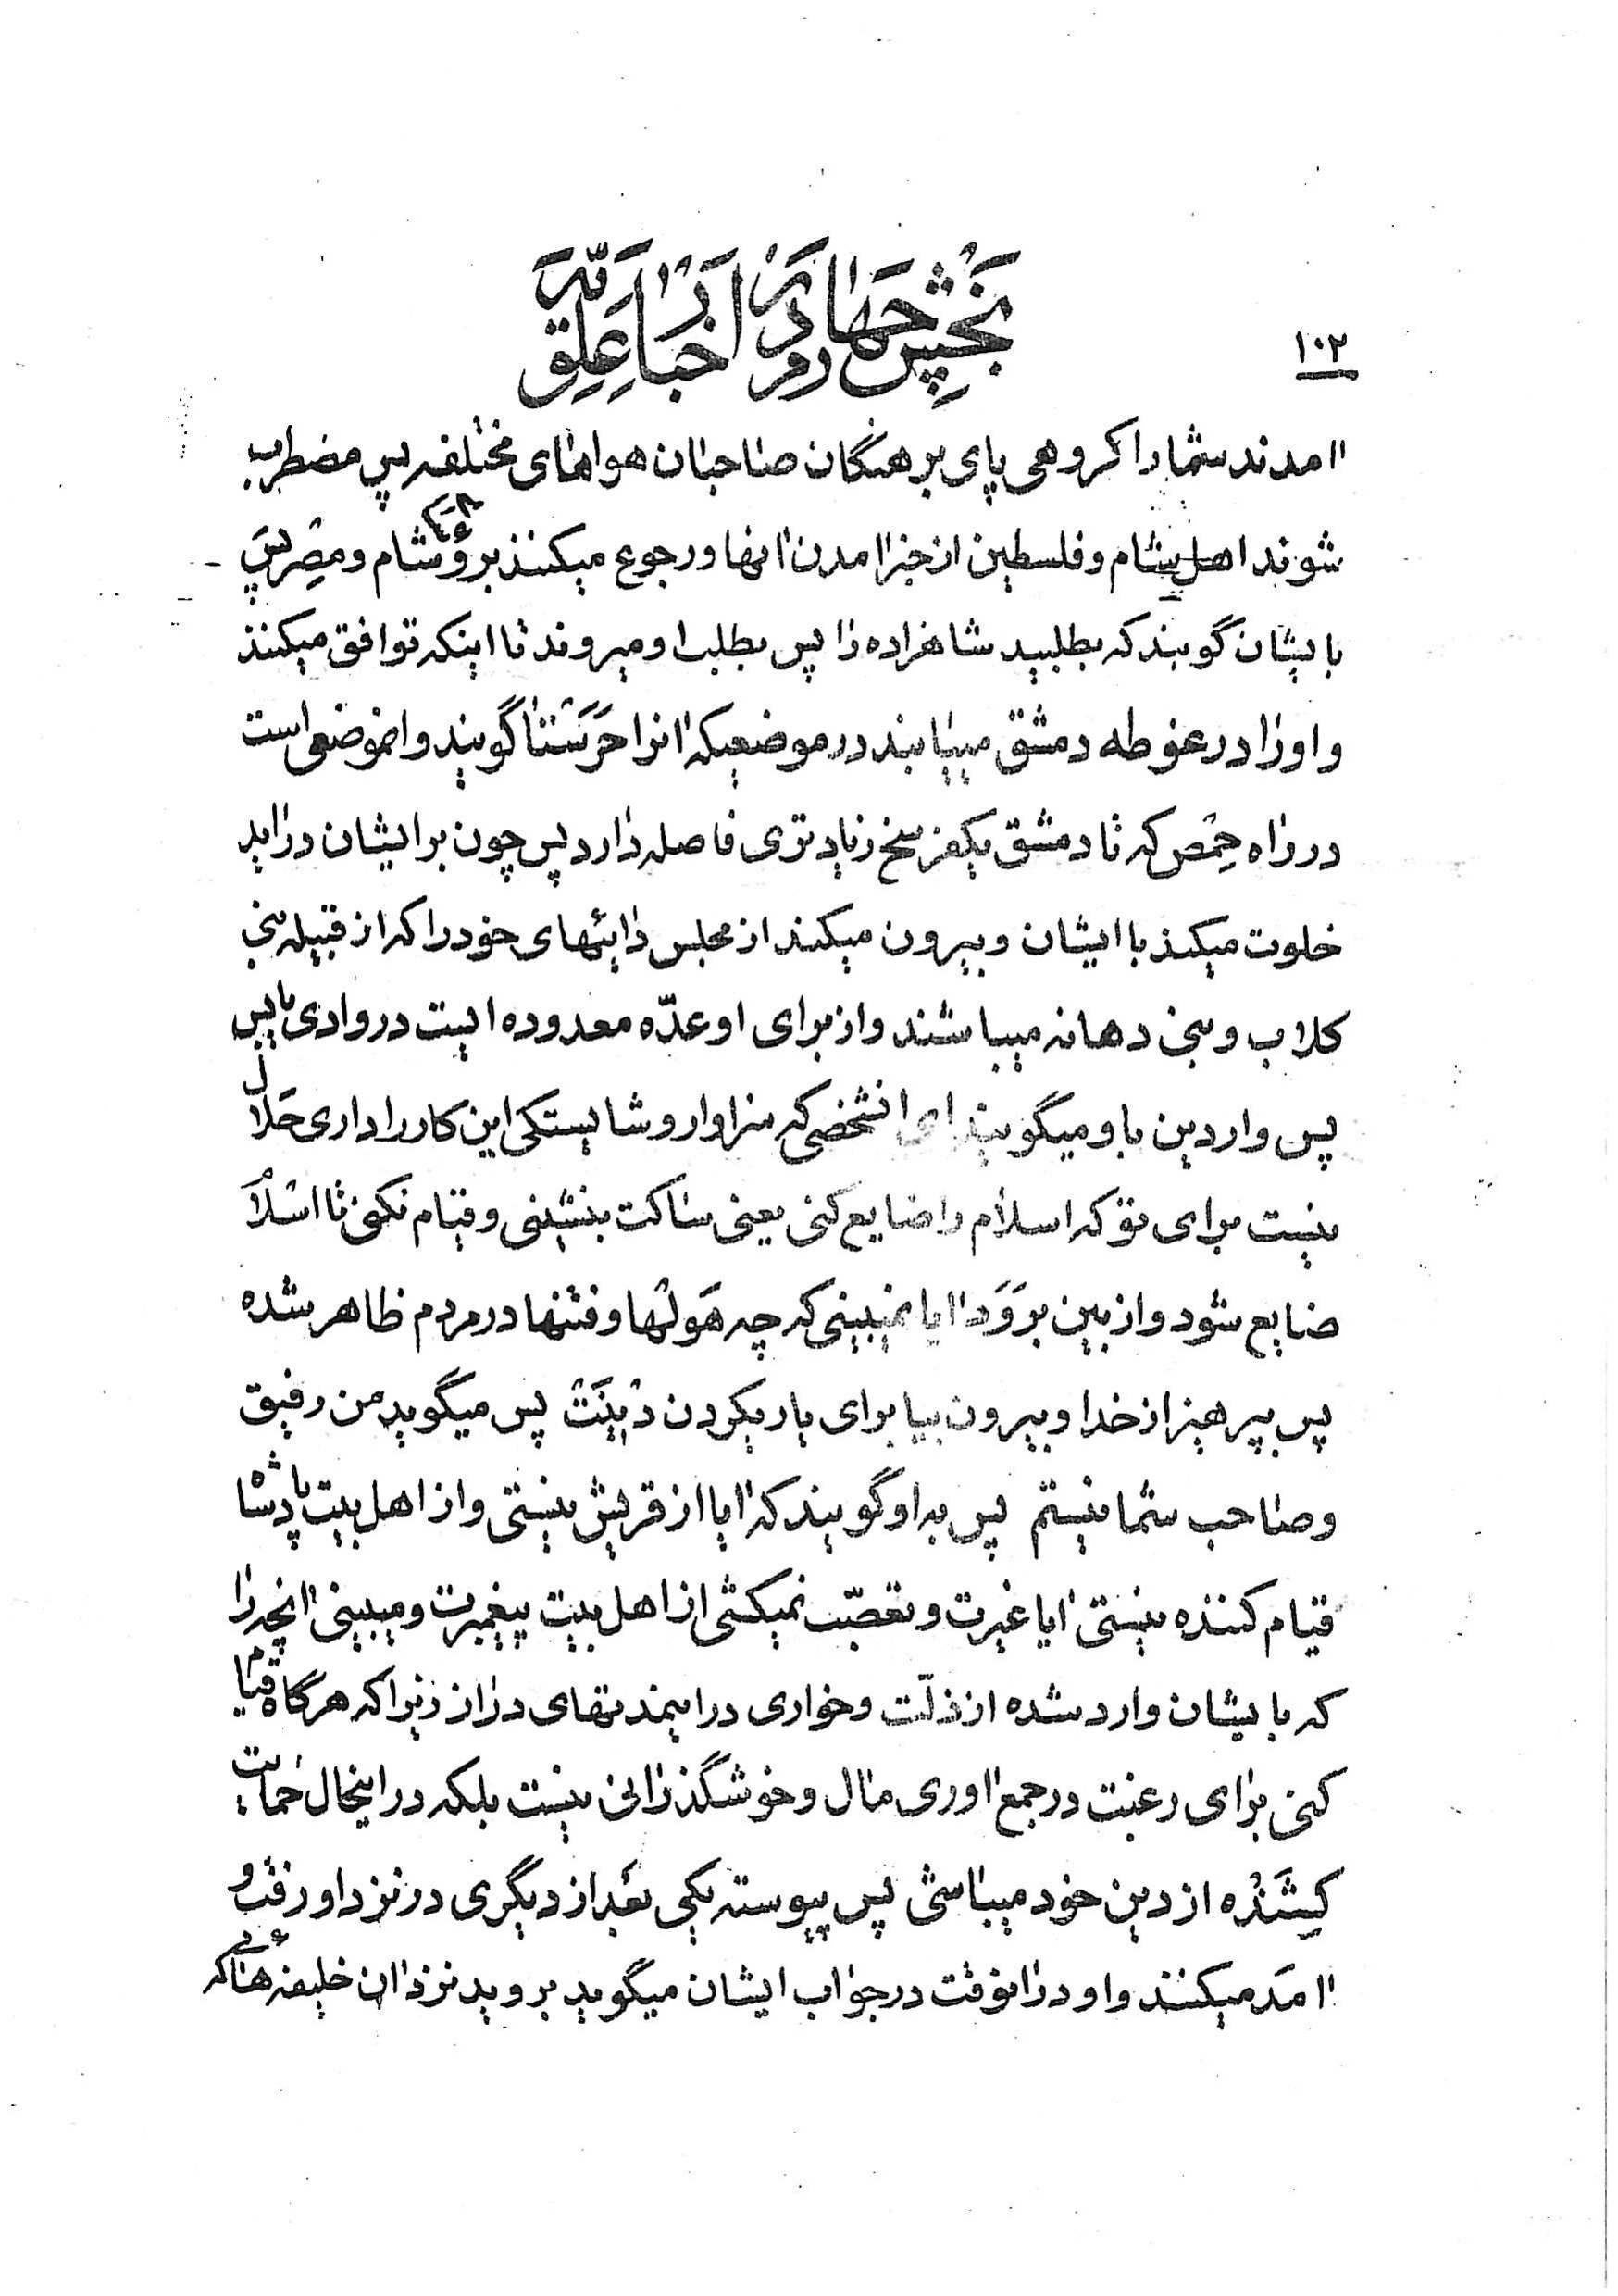 ۱۰۲
بخش چهارم در اخبار علویه
اامدند شما را کروهی پای برهنگان صاحبان هواهای مختلفه پس مضطرب
شوند اهل شام و فلسطین از خبر اامدن اانها و رجوع میکنند برؤسای شام و مصر پس
بایشان گویند که بطلبید شاهزاده را پس بطلب او میروند تا اینکه توافق میکنند
و او را در غوطه دمشق مییابند در موضعیکه اانرا حَرَسْتا گویند و اانموضعی است
در راه حِمْص که تا دمشق یکفرسخ زیادتری فاصله دارد پس چون بر ایشان در اید
خلوت میکند با ایشان و بیرون میکند از مجلس دائیهای خود را که از قبیله بنی
کلاب و بنی دهانه میباشند و از برای او عدّه معدوده ایست در وادی یابس
پس واردین باو میگویند ای اانشخصی که سزاوار و شایستکی این کار را داری حلال
نیست برای تو که اسلام را ضایع کنی یعنی ساکت بنشینی و قیام نکنی تا اسلا
ضایع شود و از بین بروَد اایا نمیبینی که چه هَولها و فتنها در مردم ظاهر شده
پس بپرهیز از خدا و بیرون بیا برای یاریکردن دْینَتْ پس میگوید من رفیق
و صاحب شما نیستم پس به او گویند که اایا از قریش نیستی و از اهل بیت پادشاه
قیام کننده نیستی اایا غیرت و تعصّب نمیکشی از اهل بیت پیغمبرت و میبینی اانچه را
که بایشان وارد شده از ذلّت و خواری در اینمدتهای دراز زیرا که هرگاه قیام
کنی برای رغبت در جمع ااوری مال و خوشگذرانی نیست بلکه در اینحال حمایت
کِشَنْده از دین خود میباشی پس پیوسته یکی بعد از دیگری در نزد او رفت و
اامَد میکنند و او در اانوقت در جواب ایشان میگوید بروید نزد اان خلیفه هائی که